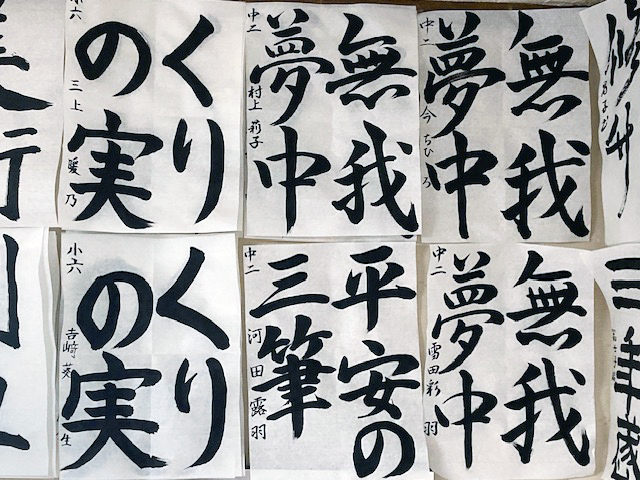 くり
の実
小六
三上
暖乃
無我
夢中
中二
村上 莉子
無我
夢中
中二
今 ちひろ
くり
の実
小六
吉崎
生
平安の
三筆
中二
河田露羽
無我
夢中
中二
雪田彩羽